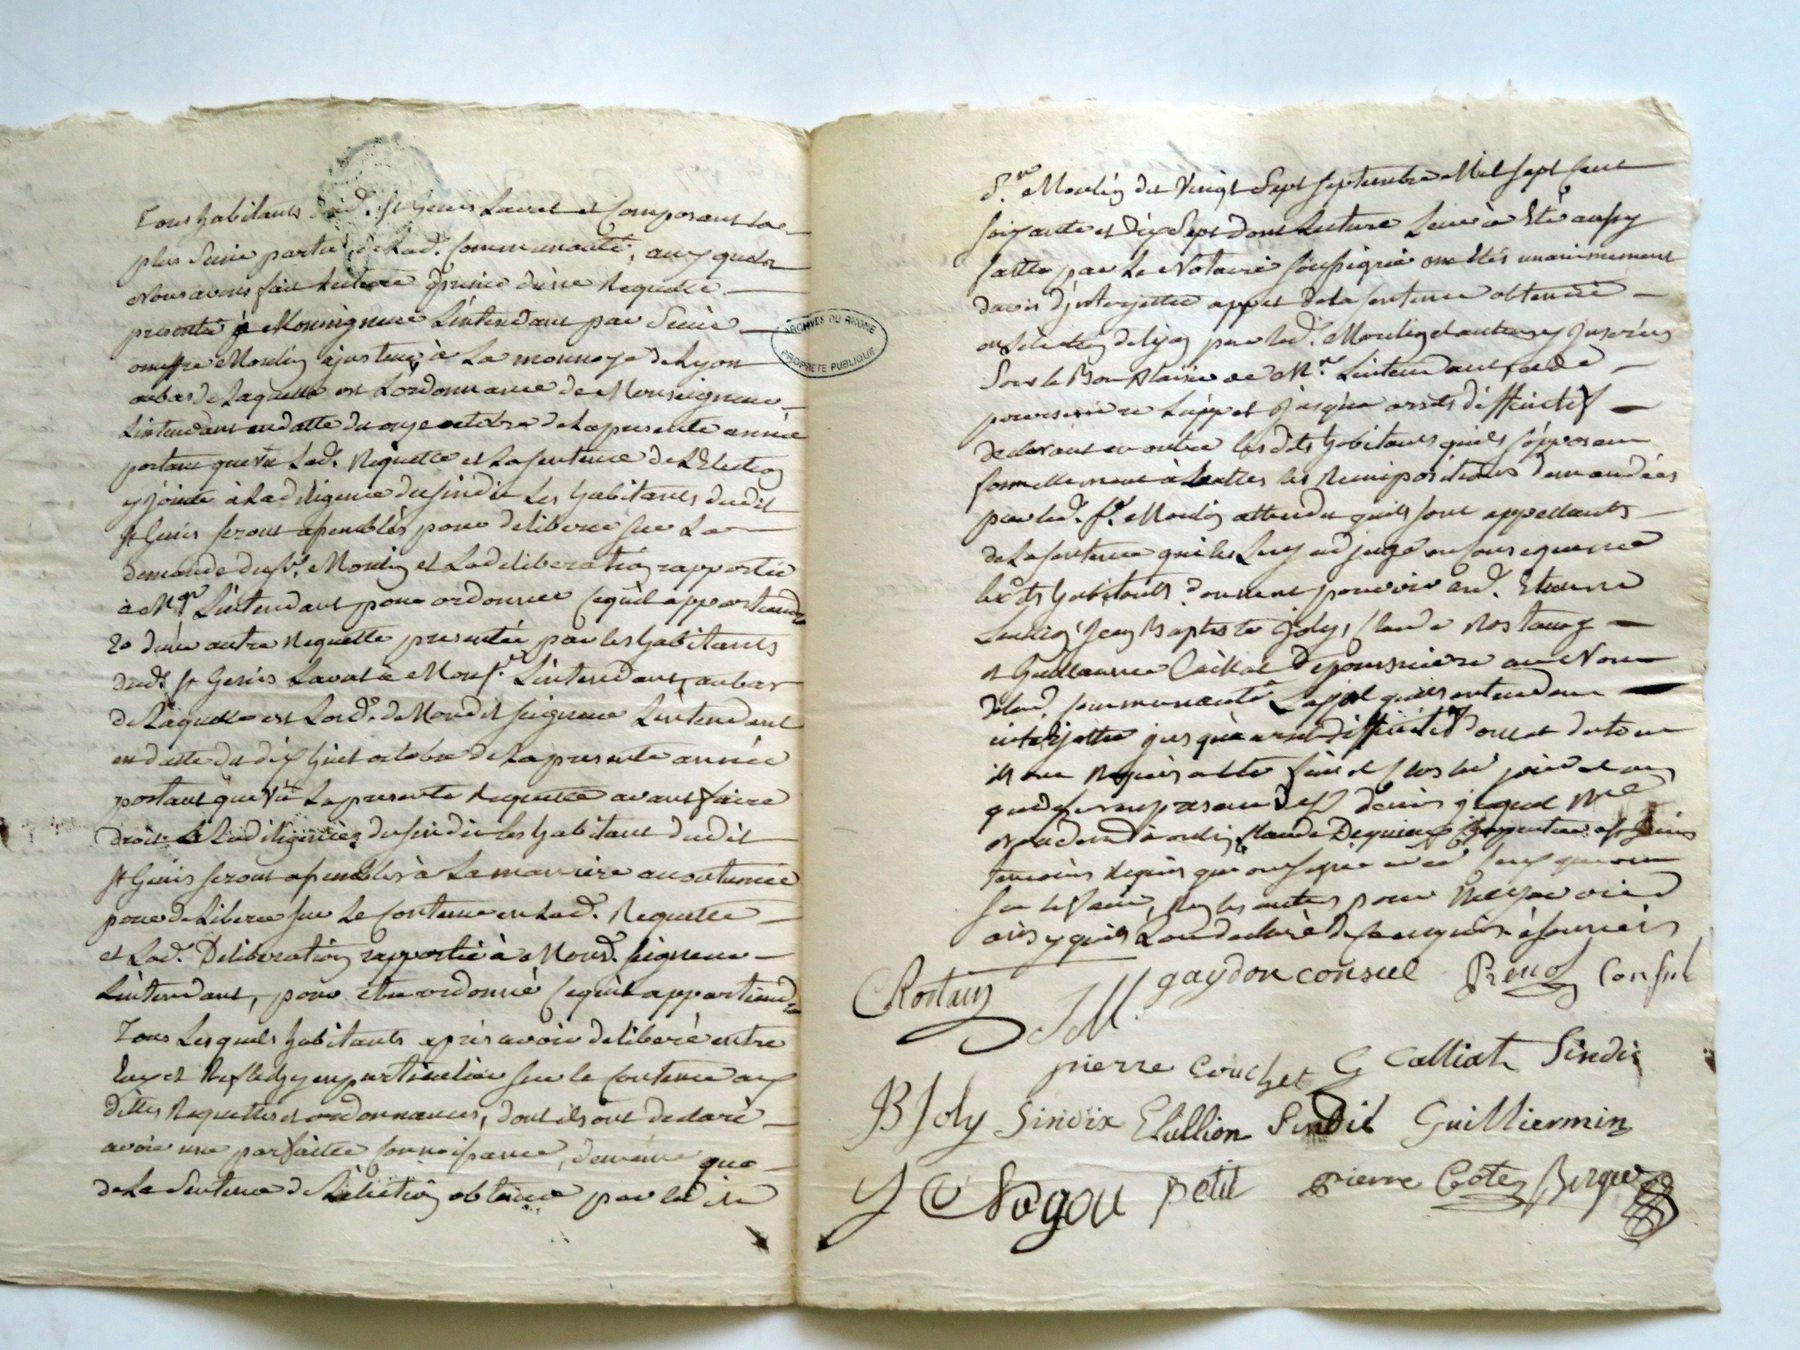 Tous habitants dud. St Genis Laval et Composant la
plus Saine partie de Lad. Communauté, auxquels
Nous avons fait Lecture d'une Requette
presenté à Monseigneur L'intendant par Sieur
Moulin ajusteur à La monnoye de Lyon
au bas de Laquelle est Lordonnance de Monseigneur
Lintendant en datte du onze octobre de La presente année
portant que vû Lad. Requette et La sentence de L'Election
y jointe à La diligence du sindic Les habitants dudit
St Genis seront assemblés pour deliberer sur La
demande du Sr. Moulin et La deliberation rapportée
à Mgr L'intendant pour ordonner Ce qu'il appartiendra
2o d'une autre Requette presentée par les habitants
dud. St Genis Laval à Monsr. L'intendant, au bas
de Laquelle est Lord. de Mondit seigneur L'intendant
en datte du dix huit octobre de La presente année
portant que vû La presente Requette avant faire
droit à La diligence du sindic les habitant dudit
St Genis seront assemblés à La maniere accoutumée
pour deLiberer sur Le Contenu en Lad. Requette
et Lad. Deliberation rapportée à Mond. seigneur
Lintendant, pour être ordonné Ce qu'il appartiendra
Tous Lesquels habitants après avoir deliberé entre
Eux et Reflechy en particulier sur le Contenu aux
dittes Requettes et ordonnances, dont ils ont declaré
avoir une parfaitte connoissance, de meme que
de La Sentence de L'election obtenue par led.
Sr. Moulin du Vingt Sept septembre Mil sept Cent
soixante et dix Sept dont Lecture Leur a Eté aussy
faitte par Le Notaire soussigné ont Etés unanimement
davis d'interjetter appel de la sentence obtenue
en L'election de Lyon par led. Moulin et autres
Sous le Bon plaisir de Mr. L'intendant et de
poursuivre Lappel jusqu'a arrets diffinitif
declarant en outre lesdits habitants quils s'opposent
formellement à touttes les Reimpositions demandées
par led. Sr. Moulin attendu quils sont appellants
de La sentence qui les Luy adjuge en consequence
lesdits habitants donnent pouvoir aud. Etienne
Lullion, Jean Baptiste Joly, Claude Rostaing
et Guillaume Caillat de poursuivre au Nom
delad. Communauté Lappel quils entendent
interjetter jusqu'à arret diffinitif dont et du tout
ils ont Requis acte fait et Clos les jour et an
que dessus en presence de Sr Denis Jaquet
temoins Requis qui ont signé avec Ceux qui ont
sçu le faire, Non les autres pour ne sçavoir
ainsy quils Lont declaré de ce enquis et sommés
CRostaing JM. gaydon consuel Prenol Consul
pierre Couchet G Calliat Sindic
JB Joly Sindix ELullion Sindic Guilliermin
J C Nogou petit pierre Cote Berger
ARCHIVES DU RHÔNE
PROPRIÉTÉ PUBLIQUE